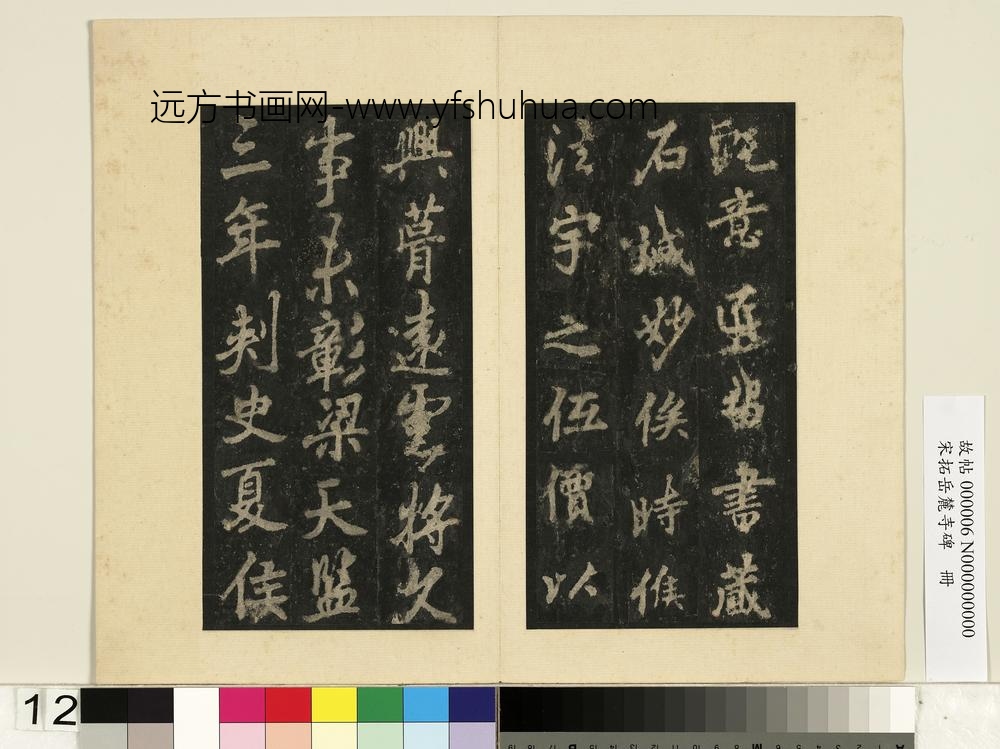 远方书画网-www.yfshuhua.com
既意匠書藏
石緘妙俟時候
法宇之伍價以
興葺遠將久
事未彰梁天監
三年刺史夏侯
故帖 000006 N000000000
宋拓岳麓寺碑 冊
12